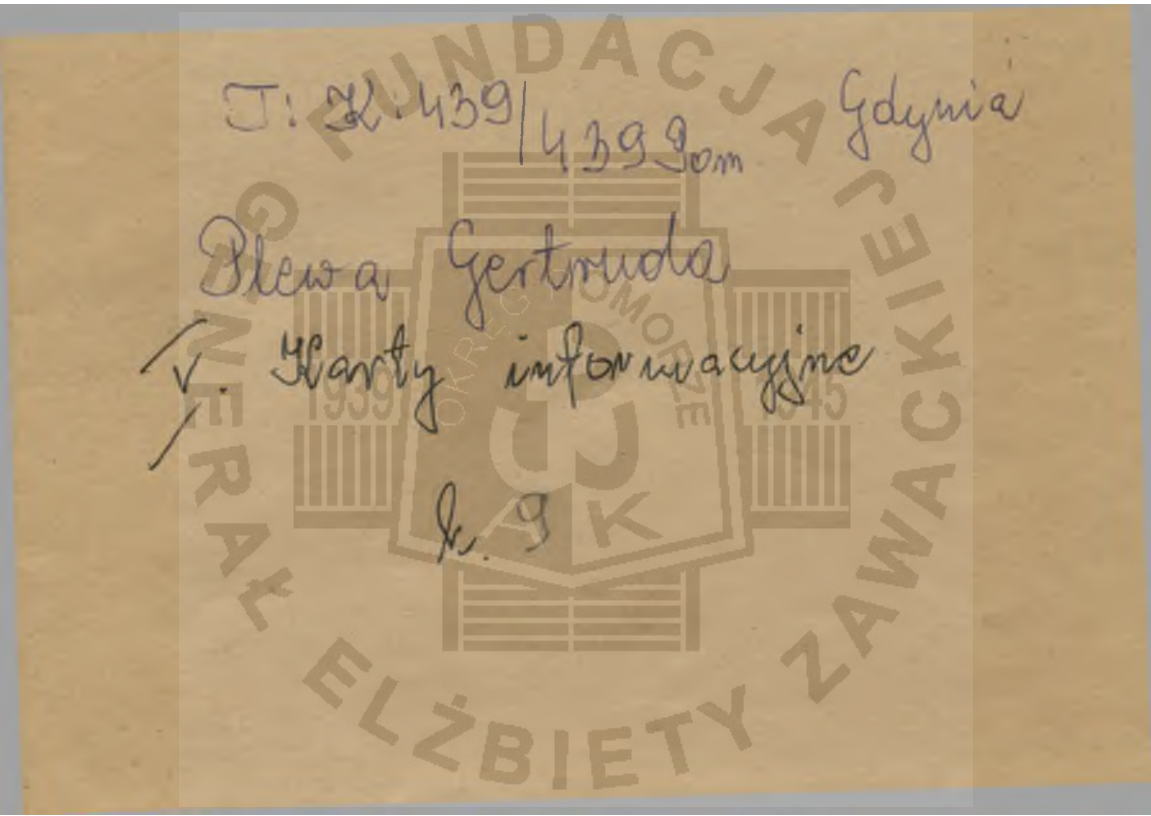 T: K: 439/439 Pom Gdynia
Plewa Gertruda
V. Karty informacyjne
k. 9
FUNDACJA GENERAŁ ELŻBIETY ZAWACKIEJ
OKRĘG POMORZE
1939 1945
AK